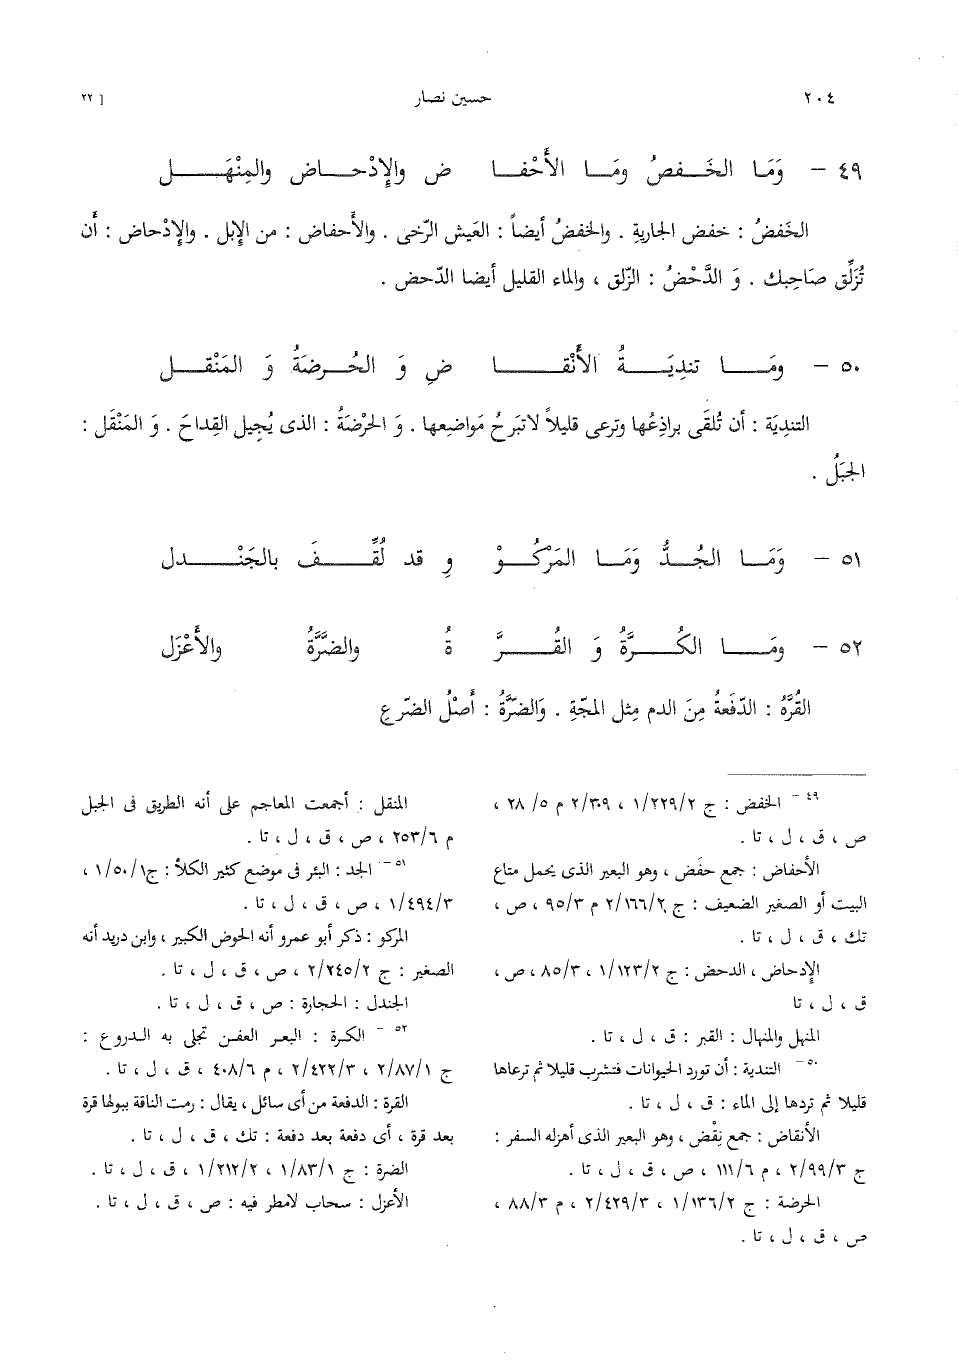 ٢٠٤ حسين نصار [ ٢٢
٤٩ – وَمَا الخَفصُ ومَا الأَحْفا ض والإِدْحاض والمِنْهَل
الخَفضُ : خفض الجاريةِ . والخفضُ أيضاً : العَيش الرّخى . والأحفاض : من الإبل . والإدْحاض : أن
تُزَلِّق صَاحِبك . وَ الدَّحْضُ : الزّلق ، والماء القليل أيضا الدّحض .
٥٠ – ومَا تندِيَةُ الأَنْقا ضِ وَ الحُرضَةُ وَ المَنْقل
التندِيَة : أن تُلقَى براذِعُها وترعى قليلاً لاتبَرحُ مَواضِعها . وَ الحُرْضَةُ : الذى يُجِيل القِداحَ . وَ المَنْقَل :
الجبَلُ .
٥١ – وَمَا الجُدُّ وَمَا المَرْكُوْ وِ قد لُقِّفَ بالجَنْدل
٥٢ – ومَا الكُرَّةُ وَ القُرَّ ةُ والضَّرَّةُ والأَعْزَل
القُرَّهُ : الدّفَعةُ مِنَ الدم مِثل المجّةِ . وَالضرّةُ : أَصْلُ الضّرعِ
٤٩ – الخفض : ج ١/٢٢٩/٢ ، ٢/٣٠٩ م ٢٨/٥ ،
ص ، ق ، ل ، تا .
الأحفاض : جمع حفَض ، وهو البعير الذى يحمل متاع
البيت أو الصغير الضعيف : ج ٢/١٦٦/٢ م ٩٥/٣ ، ص ،
تك ، ق ، ل ، تا .
الإدحاض ، الدحض : ج ١/١٢٣/٢ ، ٨٥/٣ ، ص ،
ق ، ل ، تا
المنهل والمنهال : القبر : ق ، ل ، تا .
٥٠ – التندية : أن تورد الحيوانات فتشرب قليلا ثم ترعاها
قليلا ثم تردها إلى الماء : ق ، ل ، تا .
الأنقاض : جمع نِقْض ، وهو البعير الذى أهزله السفر :
ج ٢/٩٩/٣ ، م ١١١/٦ ، ص ، ق ، ل ، تا .
الحرضة : ج ١/١٣٦/٢ ، ٢/٤٢٩/٣ ، م ٨٨/٣ ،
ص ، ق ، ل ، تا .
المنقل : أجمعت المعاجم على أنه الطريق فى الجبل
م ٢٥٣/٦ ، ص ، ق ، ل ، تا .
٥١ – الجد : البئر فى موضع كثير الكلأ : ج ١/٥٠/١ ،
١/٤٩٤/٣ ، ص ، ق ، ل ، تا .
المركو : ذكر أبو عمرو أنه الحوض الكبير ، وابن دريد أنه
الصغير : ج ٢/٢٤٥/٢ ، ص ، ق ، ل ، تا .
الجندل : الحجارة : ص ، ق ، ل ، تا .
٥٢ – الكرة : البعر العفن تجلى به الدروع :
ج ٢/٨٧/١ ، ٢/٤٢٢/٣ ، م ٤٠٨/٦ ، ق ، ل ، تا .
القرة : الدفعة من أى سائل ، يقال : رمت الناقة ببولها قرة
بعد قرة ، أى دفعة بعد دفعة : تك ، ق ، ل ، تا .
الضرة : ج ١/٨٣/١ ، ١/٢١٢/٢ ، ق ، ل ، تا .
الأعزل : سحاب لامطر فيه : ص ، ق ، ل ، تا .